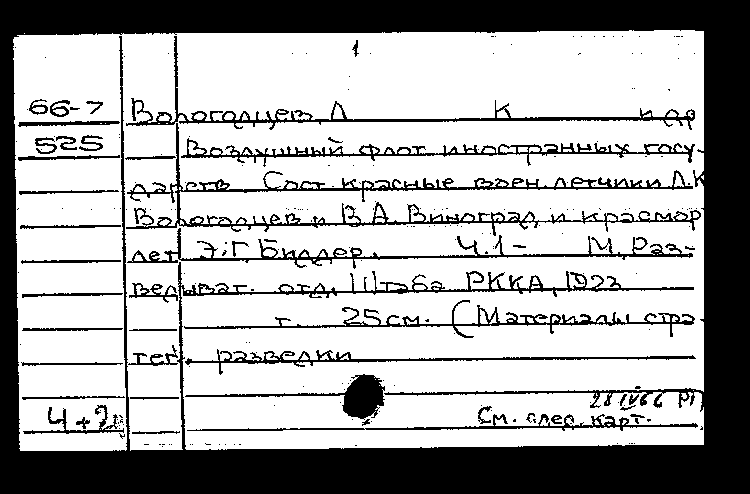 1
66-7 Вологодцев, Л К и др
525 Воздушный флот иностранных госу-
дарств Сост. красные воен. летчики Л.К
Вологодцев и В.А. Виноград, и красмор
лет Э.Г. Биллер. Ч.1- М, Раз-
ведыват. отд. Штаба РККА, 1922
т. 25см. (Материалы стра-
тег. разведки
28 IV 66
4+
См. след. карт.